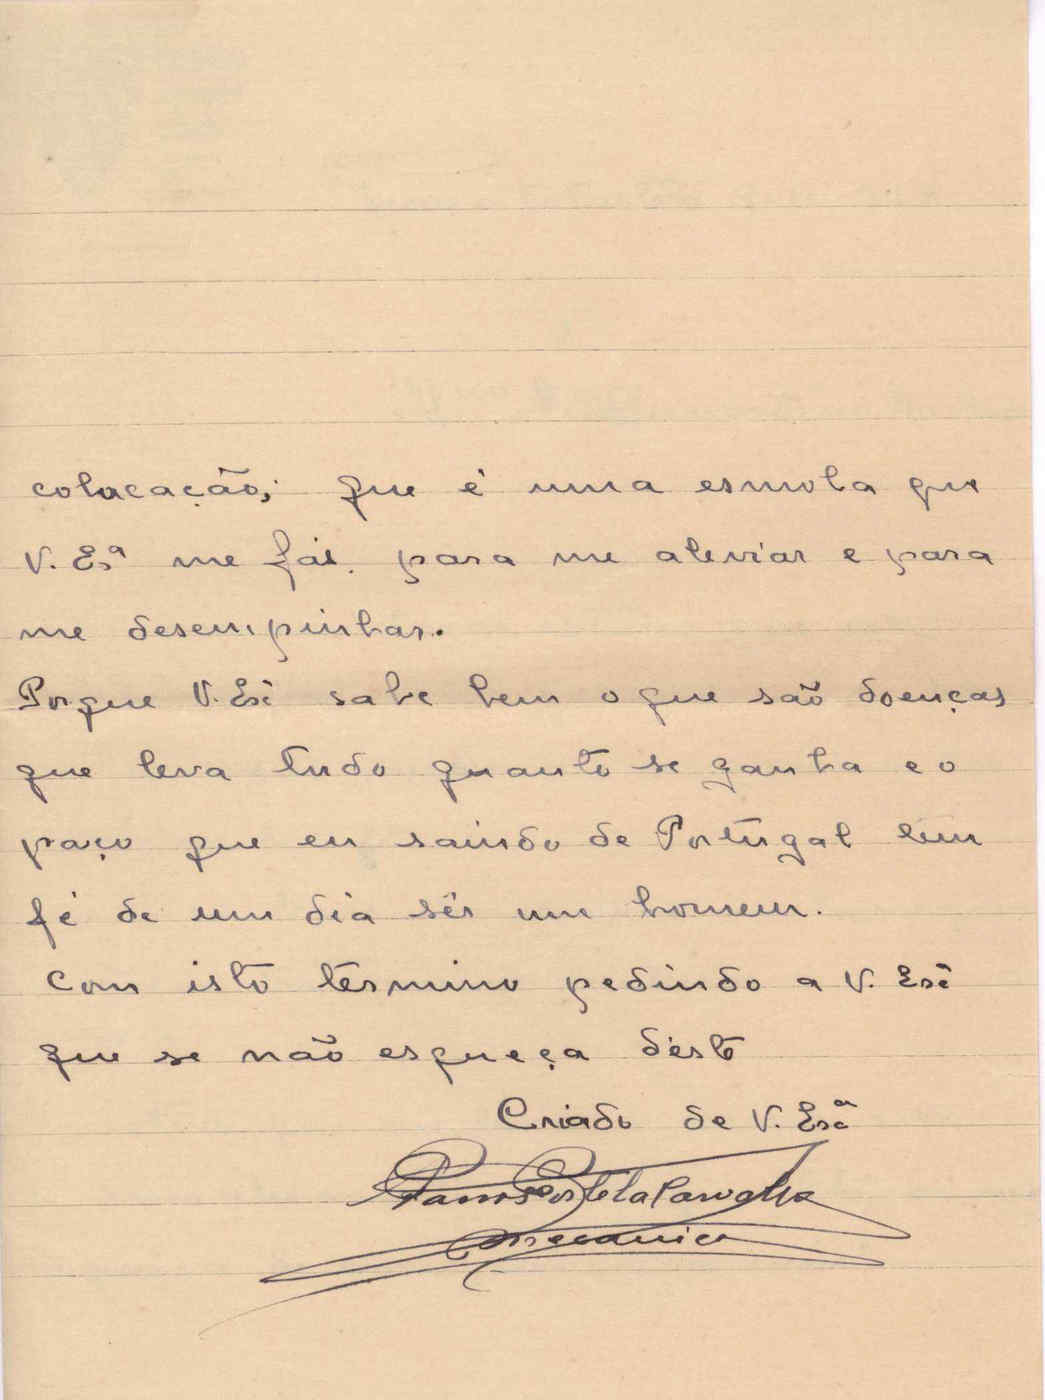 colacação; que é uma esmola que
V. Esª me fáis. para me aleviar e para
me desempinhar.
Porque V. Esê sabe bem o que são doenças
que leva tudo quanto se ganha e o
paço que eu saindo de Portugal tem
fé de um dia sêr um homem.
Com isto termino pedindo a V. Esê
que se não esqueça dèsto
Criado de V. Esª
Costela Carvalho
Mecanico